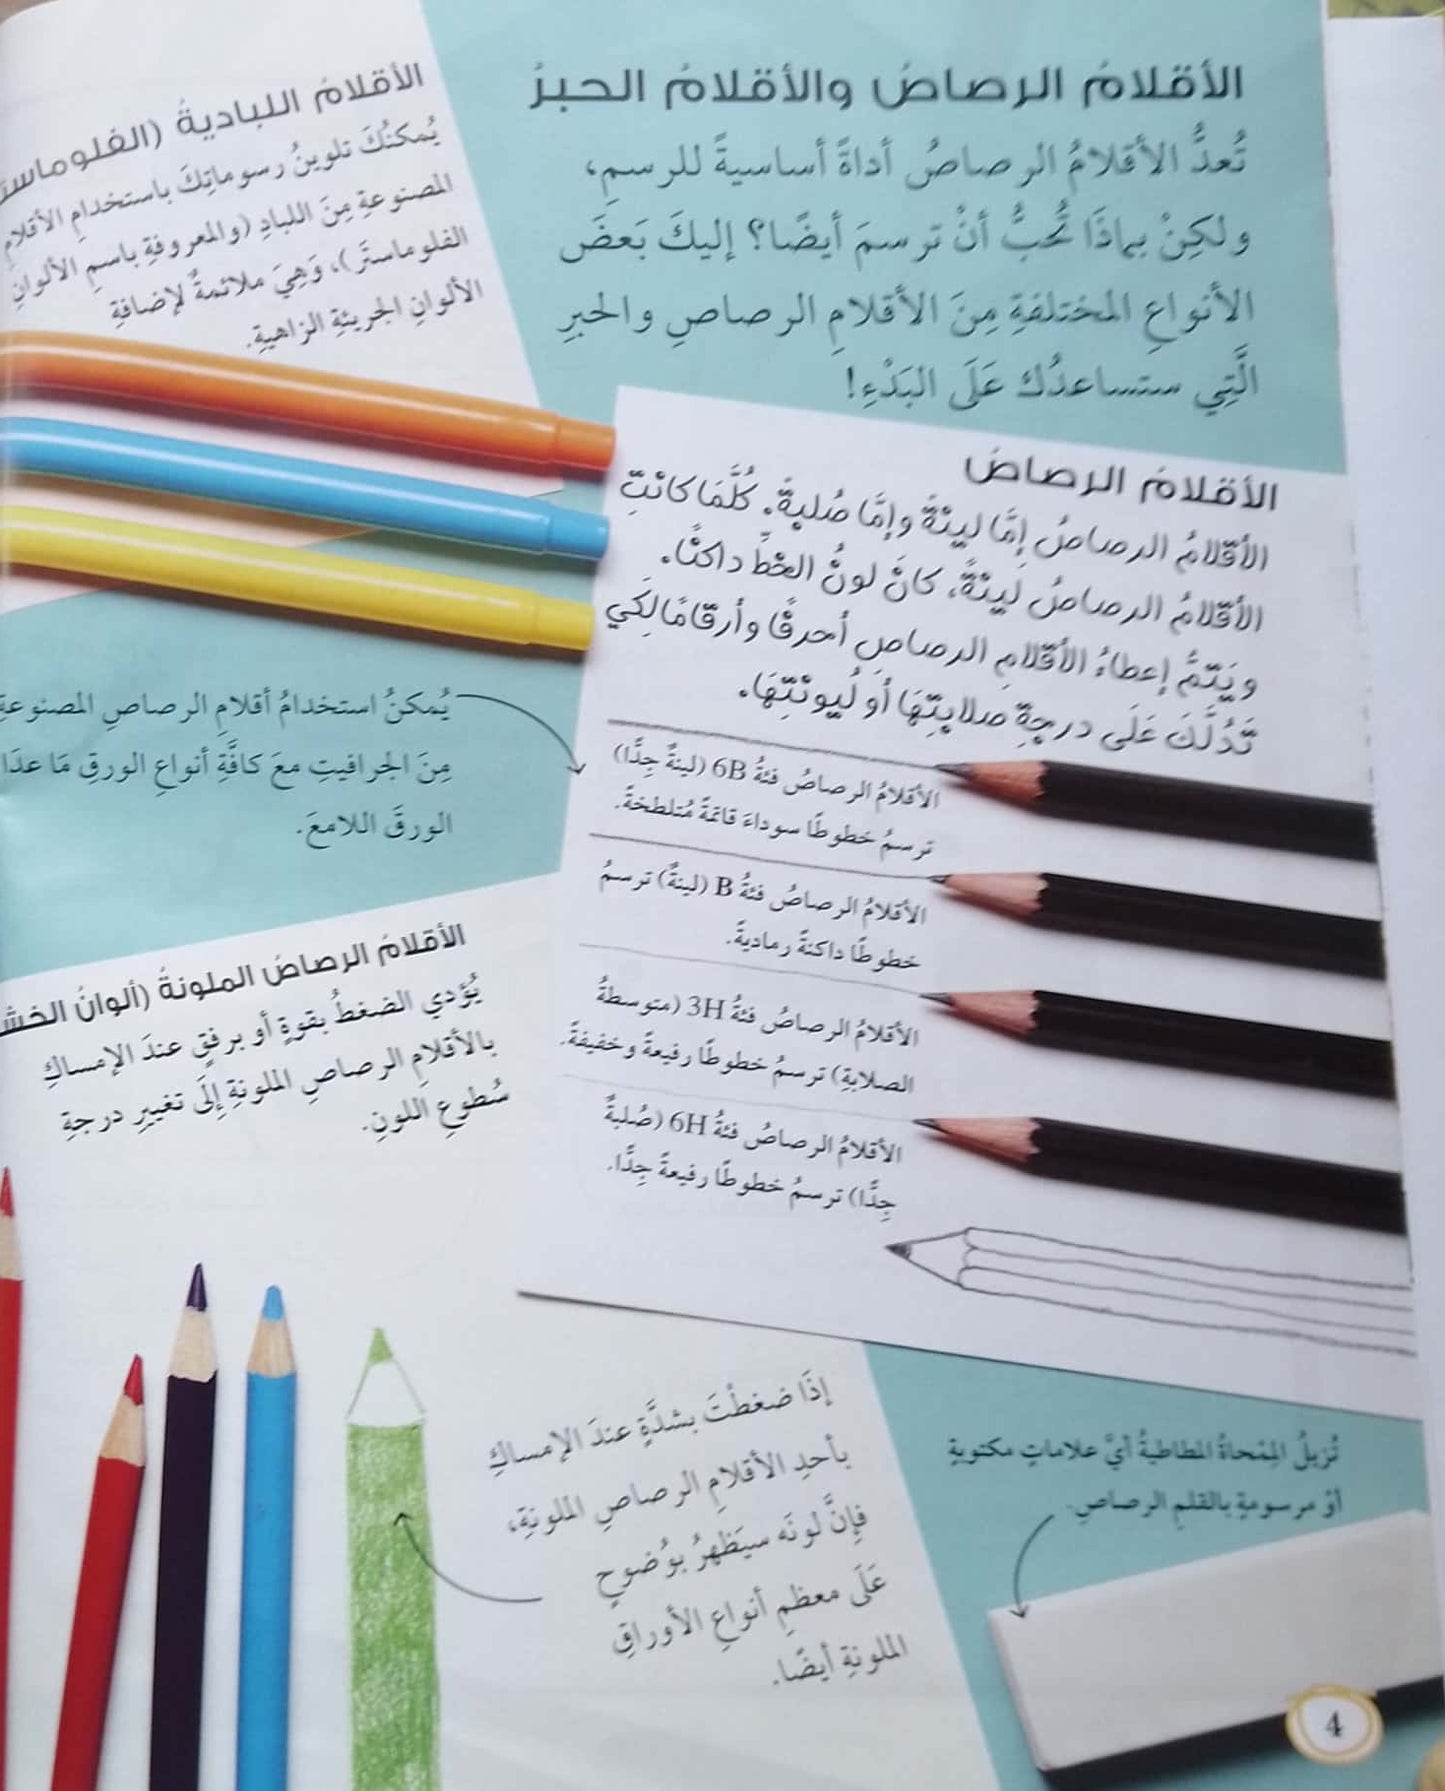 الأقلامُ الرصاصُ والأقلامُ الحبرُ
تُعدُّ الأقلامُ الرصاصُ أداةً أساسيةً للرسمِ،
ولكِنْ بِماذَا تُحبُّ أنْ ترسمَ أيضًا؟ إليكَ بَعضَ
الأنواعِ المختلفةِ مِنَ الأقلامِ الرصاصِ والحبرِ
الَّتِي ستساعدُك عَلَى البَدْءِ!
الأقلامُ الرصاصُ
الأقلامُ الرصاصُ إمَّا لينةً وإمَّا صُلبةً. كُلَّمَا كانتِ
الأقلامُ الرصاصُ لينةً، كانَ لونُ الخطِّ داكنًا.
ويَتمُّ إعطاءُ الأقلامِ الرصاصِ أحرفًا وأرقامًا لِكَي
تَدُلَّكَ عَلَى درجةِ صلابتِهَا أو لُيونتِهَا.
الأقلامُ الرصاصُ فئةُ 6B (لينةٌ جِدًّا)
ترسمُ خطوطًا سوداءَ قاتمةً مُتلطخةً.
الأقلامُ الرصاصُ فئةُ B (لينةٌ) ترسمُ
خطوطًا داكنةً رماديةً.
الأقلامُ الرصاصُ فئةُ 3H (متوسطةُ
الصلابةِ) ترسمُ خطوطًا رفيعةً وخفيفةً.
الأقلامُ الرصاصُ فئةُ 6H (صُلبةٌ
جِدًّا) ترسمُ خطوطًا رفيعةً جِدًّا.
تُزيلُ المِمْحاةُ المطاطيةُ أيَّ علاماتٍ مكتوبةٍ
أوْ مرسومةٍ بالقلمِ الرصاصِ.
الأقلامُ اللباديةُ
يُمكنُكَ تلوينُ رسوماتِكَ باستخدامِ الأقلامِ
المصنوعةِ مِنَ اللبادِ (والمعروفةِ باسمِ الألوانِ
الفلوماستَر)، وَهِيَ ملائمةٌ لإضافةِ
الألوانِ الجريئةِ الزاهيةِ.
يُمكنُ استخدامُ أقلامِ الرصاصِ المصنوعةِ
مِنَ الجرافيتِ معَ كافَّةِ أنواعِ الورقِ مَا عدَا
الورقَ اللامعَ.
الأقلامُ الرصاصُ الملونةُ (ألوانُ
يُؤدي الضغطُ بقوةٍ أو برفقٍ عندَ الإمساكِ
بالأقلامِ الرصاصِ الملونةِ إلَى تغييرِ درجةِ
سُطوعِ اللونِ.
إذَا ضغطْتَ بشدَّةٍ عندَ الإمساكِ
بأحدِ الأقلامِ الرصاصِ الملونةِ،
فإنَّ لونَه سيَظهرُ بوُضوحٍ
عَلَى معظمِ أنواعِ الأوراقِ
الملونةِ أيضًا.
4